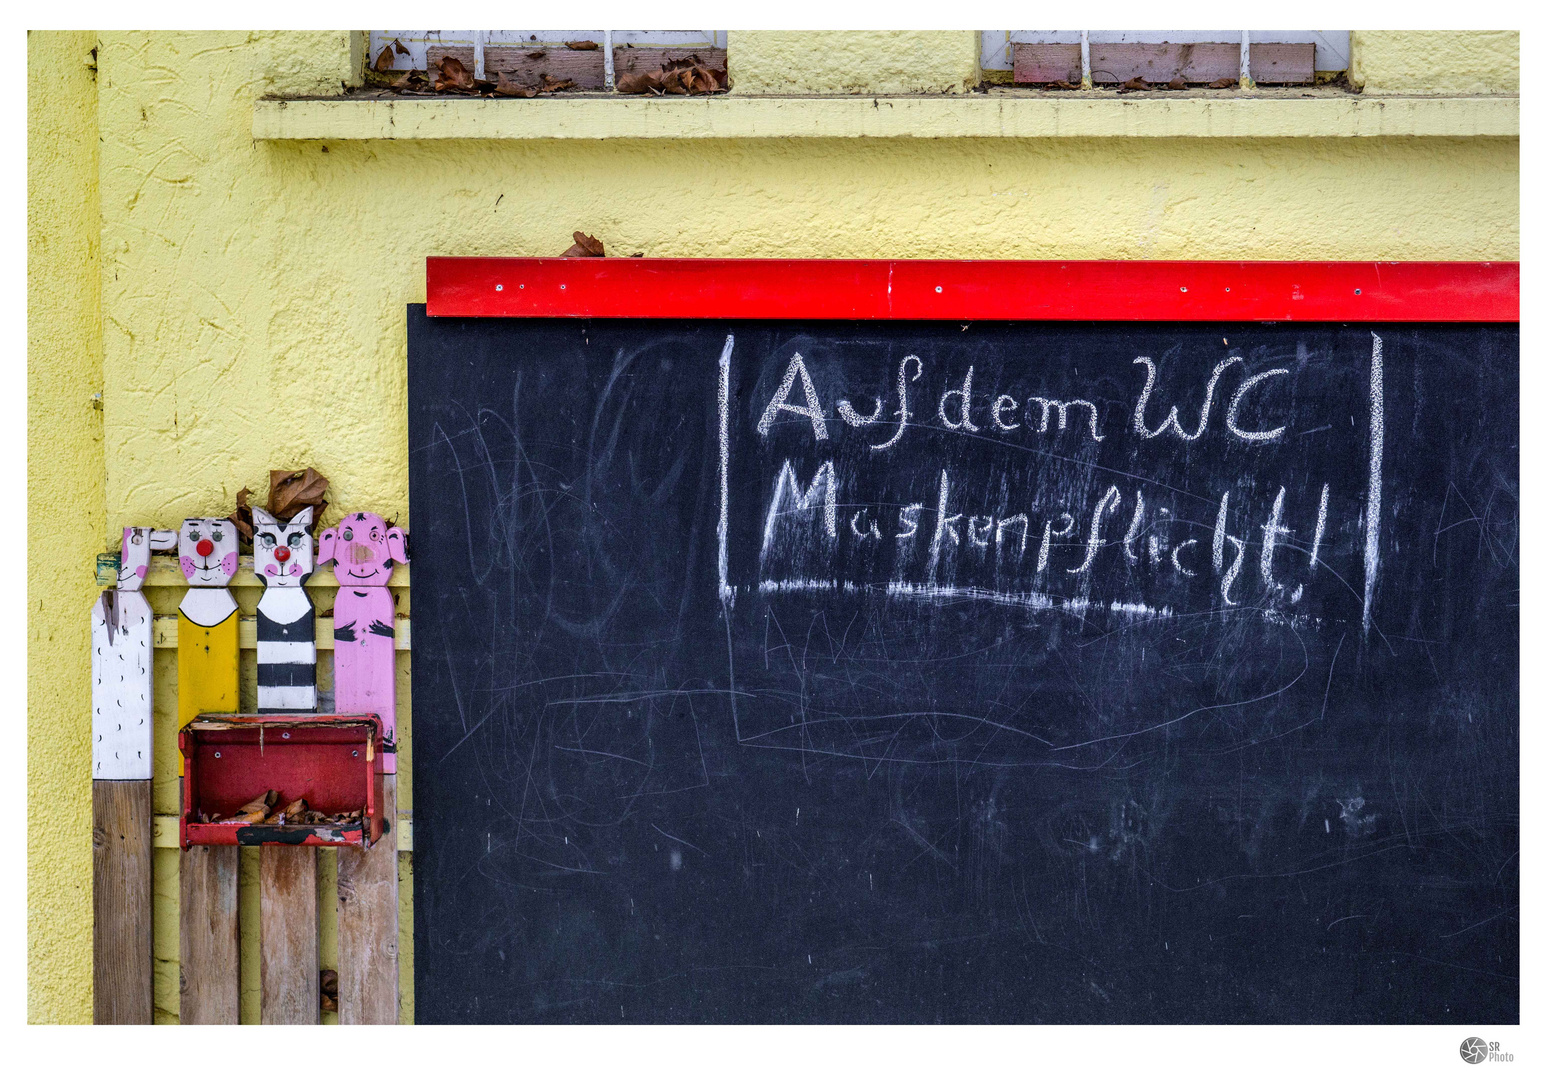 Auf dem WC
Maskenpflicht!
SR
Photo